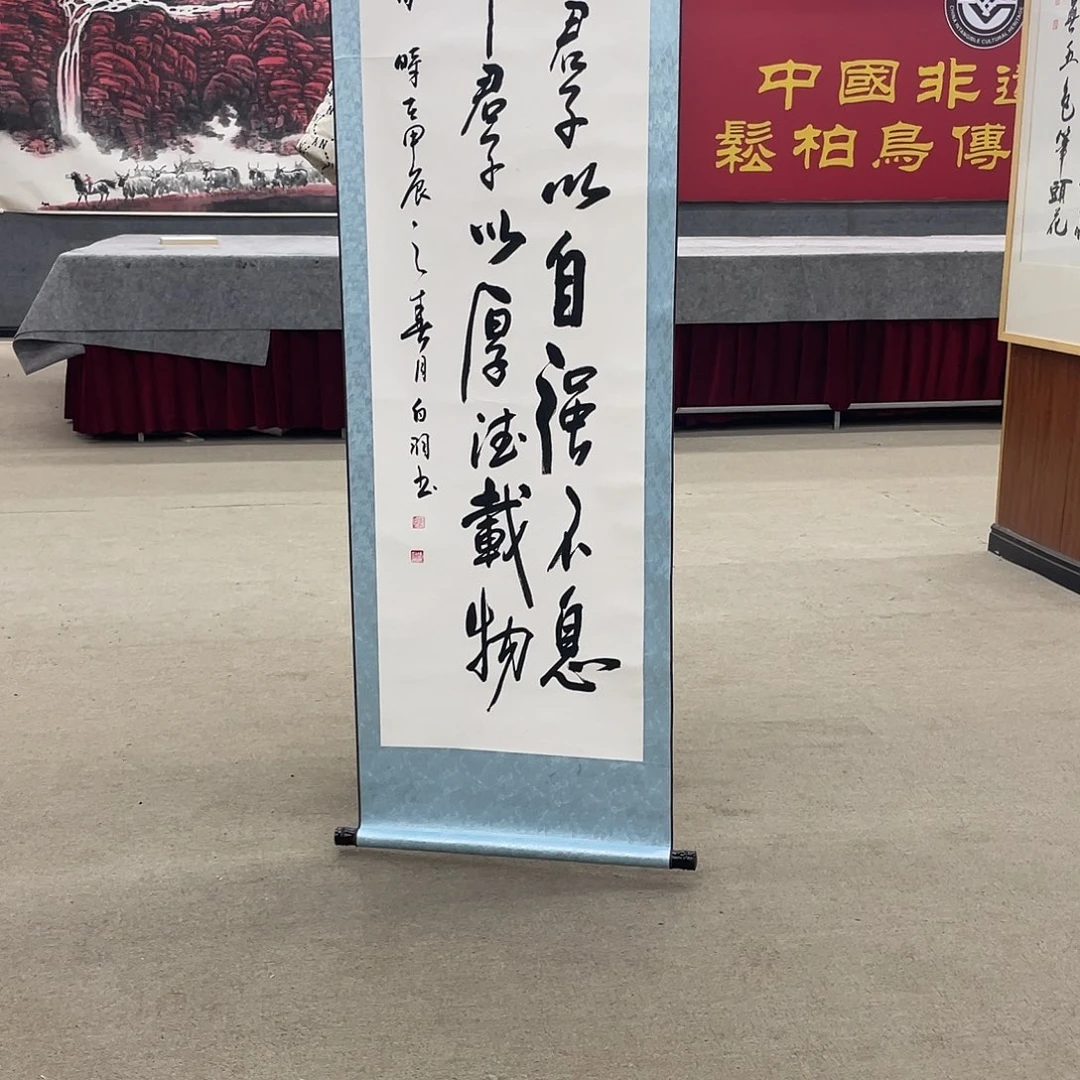 君子以自强不息
君子以厚德載物
時在甲辰之春月白羽书
中國非遗
鬆柏鳥傳
CHINA INTANGIBLE CULTURAL HERITAGE
五色筆頭花